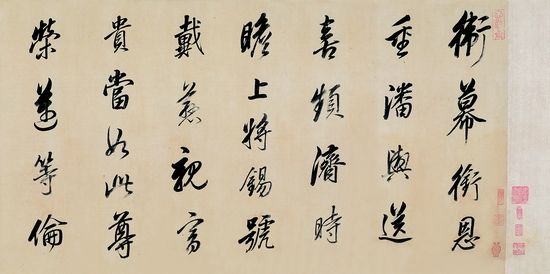 衛幕銜恩
重潘輿送
喜頻濟時
瞻上將錫號
戴慈親富
貴當如此尊
榮邁等倫